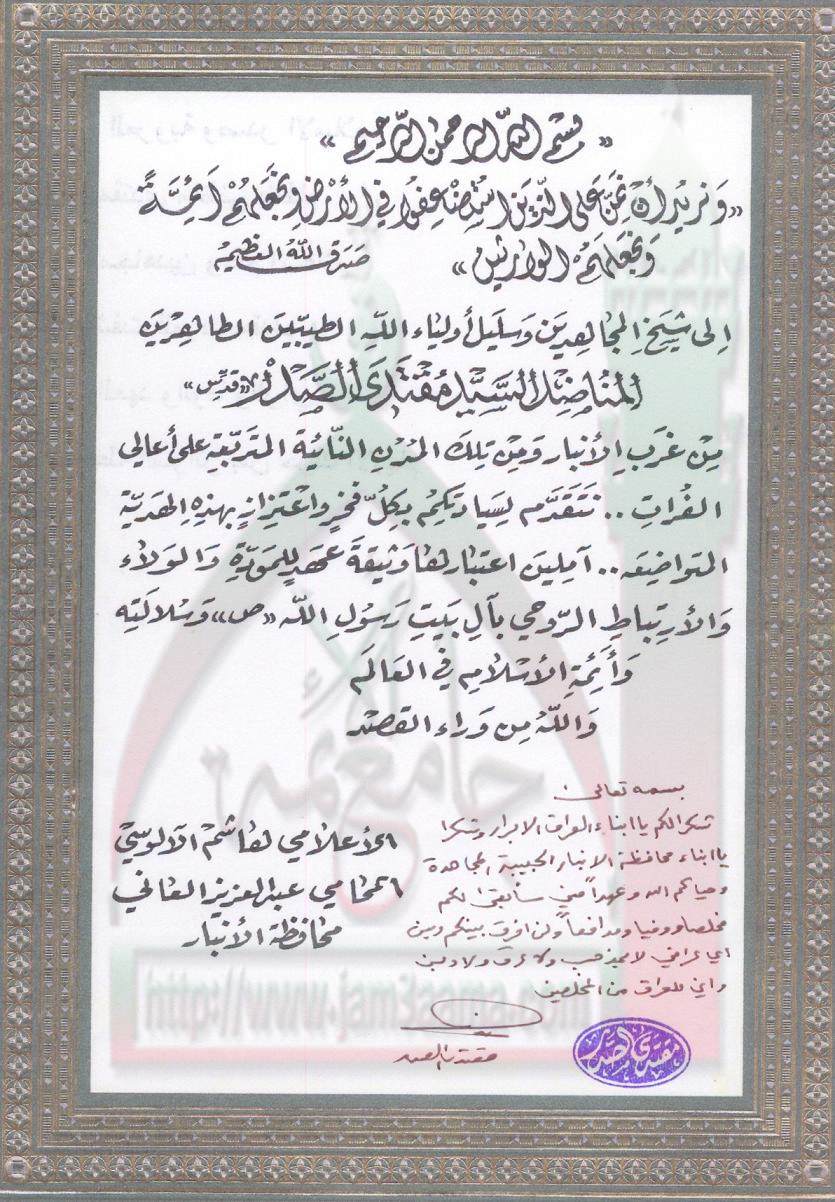 « بسم الله الرحمن الرحيم »
«ونريد أن نمن على الذين استضعفوا في الأرض ونجعلهم أئمة
ونجعلهم الوارثين» صدق الله العظيم
إلى شيخ المجاهدين وسليل أولياء الله الطيبين الطاهرين
المناضل السيد مقتدى الصدر «قدس»
من غرب الأنبار ومن تلك المدن النائية المتربعة على أعالي
الفرات .. نتقدم لسيادتكم بكل فخر واعتزاز بهذه الهدية
المتواضعه .. آملين اعتبارها وثيقة عهد للمودة والولاء
والأرتباط الروحي بآل بيت رسول الله «ص» وسلالته
وأئمة الأسلام في العالم
والله من وراء القصد
الأعلامي هاشم الآلوسي
المحامي عبدالعزيز العاني
محافظة الأنبار
بسمه تعالى
شكرا لكم يا ابناء العراق الابرار وشكرا
يا ابناء محافظة الانبار الحبيبة المجاهدة
وحياكم الله وعهداً مني سأبقى لكم
مخلصا ووفيا ومدافعاً ولن افرق بينكم وبين
اي عراقي لا بمذهب ولا عرق ولا دين
واني للعراق من المخلصين
مقتدى الصدر
مقتدى الصدر
جامع أئمة
http://www.jam3aama.com